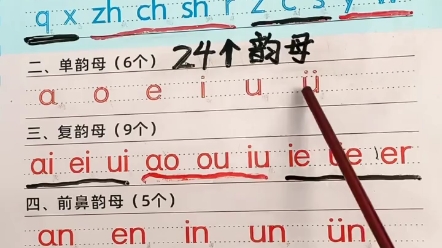 q x zh ch sh r z c s y w
二、单韵母（6个） 24个韵母
a o e i u ü
三、复韵母（9个）
ai ei ui ao ou iu ie üe er
四、前鼻韵母（5个）
an en in un ün